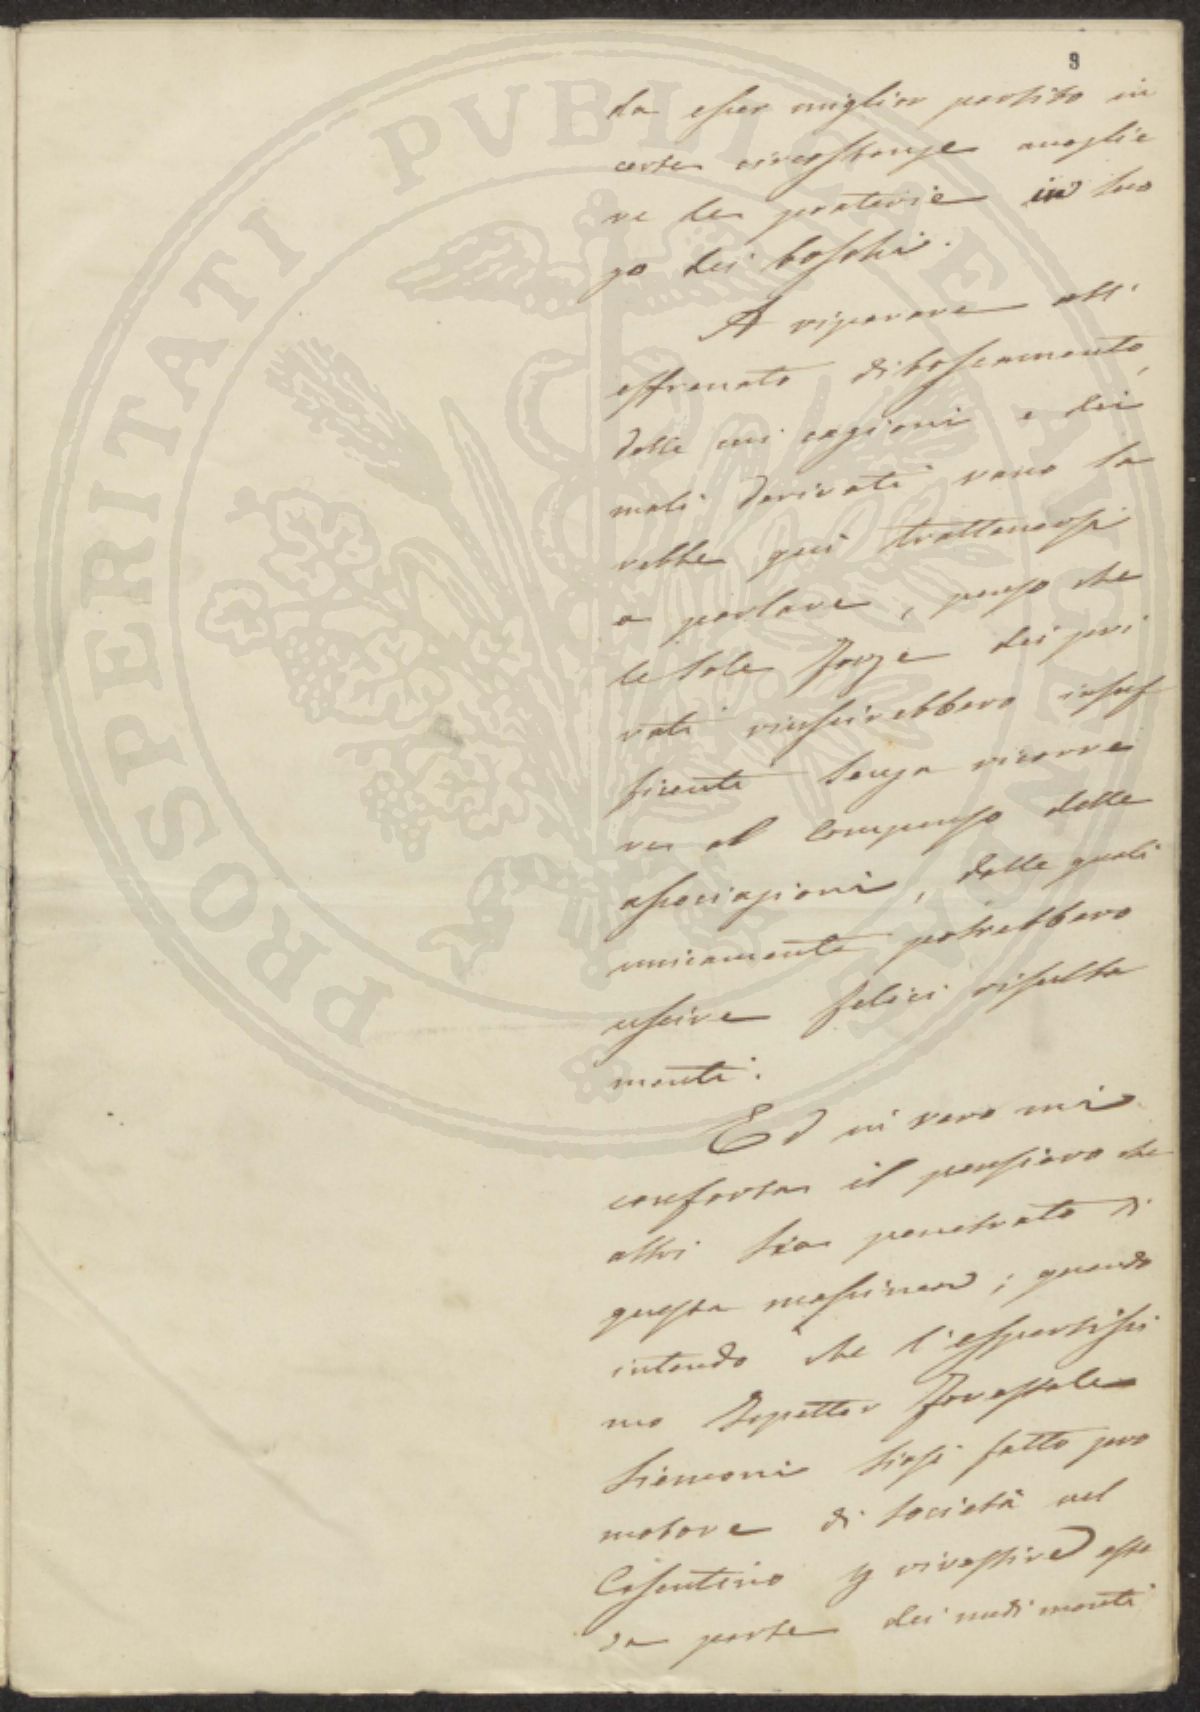 9
da esser miglior partito in
certe circostanze accoglie
re le praterie in luo
go dei boschi.
A riparare all'
effrenato diboscamento,
delle cui cagioni e dei
mali derivati vano sa
rebbe qui trattenersi
a parlare, penso che
le sole forze dei pri
vati riuscirebbero insuf
ficienti senza ricorre
re al compenso delle
associazioni, dalle quali
unicamente potrebbero
uscire felici risulta
menti.
Ed in vero mi
conforta il pensiero che
altri sia penetrato di
questa massima; quando
intendo che l'espertissi
mo Ispettor Forestale
Siemoni siasi fatto pro
motore di società nel
Casentino per rivestire este
sa parte dei nudi monti
PROSPERITATI PVBLICAE AVGENDAE